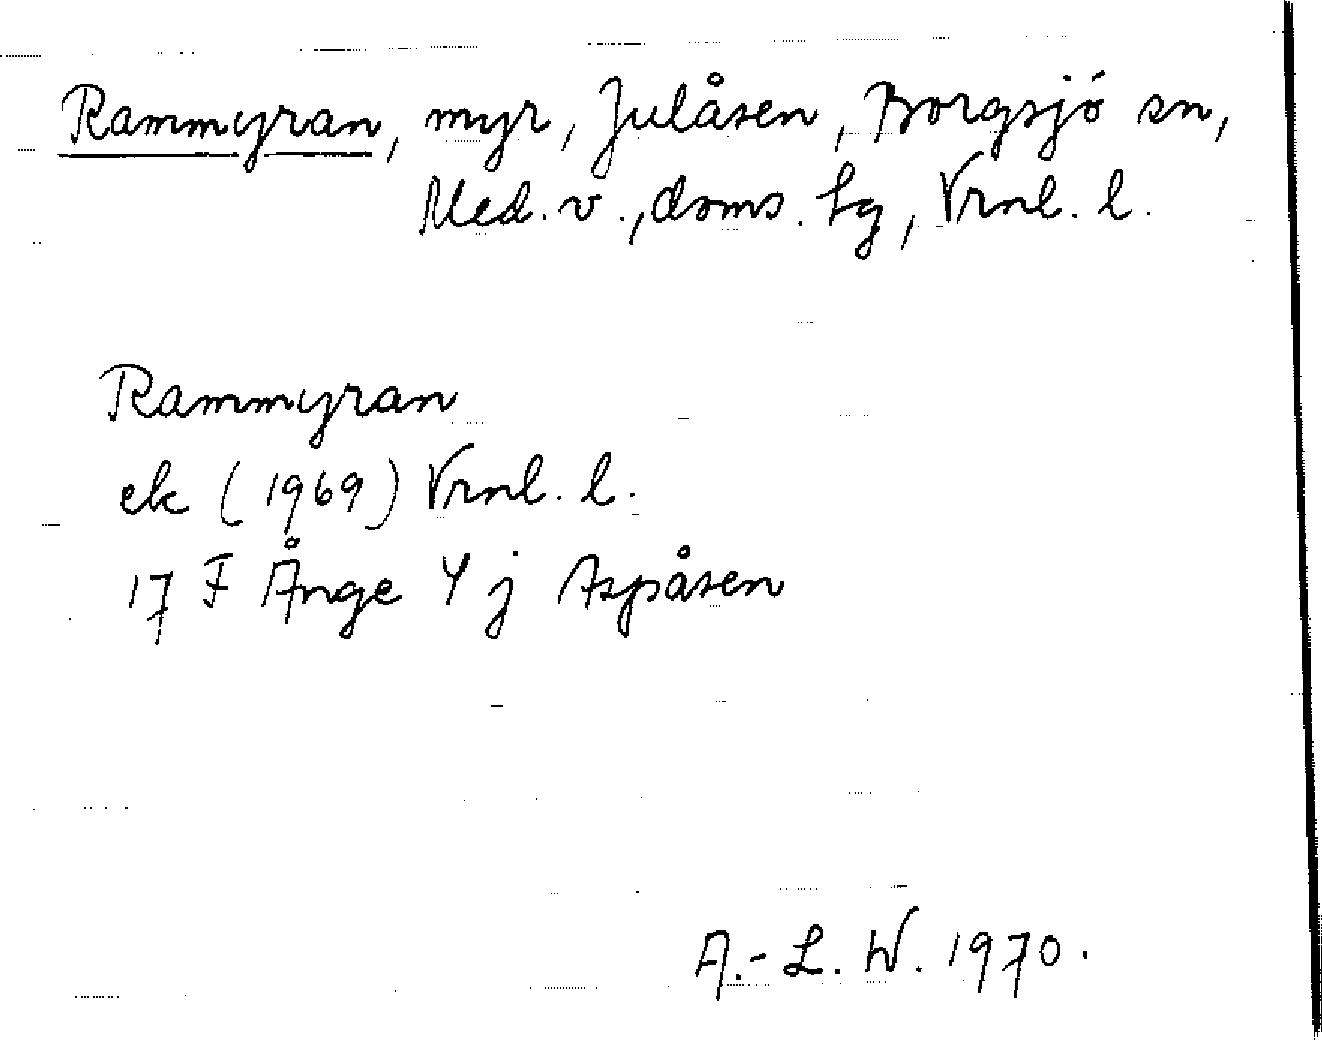 Rammyran, myr, Julåsen, Borgsjö sn,
Med. v., doms. hg, Vrnl. l.
Rammyran
ek (1969) Vrnl. l.
17 F Ånge 4 j Aspåsen
A.-L. W. 1970.